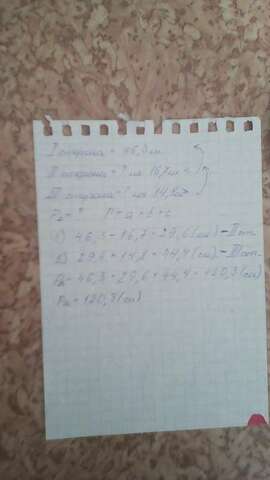 I сторона = 46,3 см
II сторона = ? на 16,7 см <
III сторона = ? на 14,8 см >
P△ = ? P = a + b + c
1) 46,3 - 16,7 = 29,6 (см) - II ст.
2) 29,6 + 14,8 = 44,4 (см) - III ст.
P△ = 46,3 + 29,6 + 44,4 = 120,3 (см)
P△ = 120,3 (см)